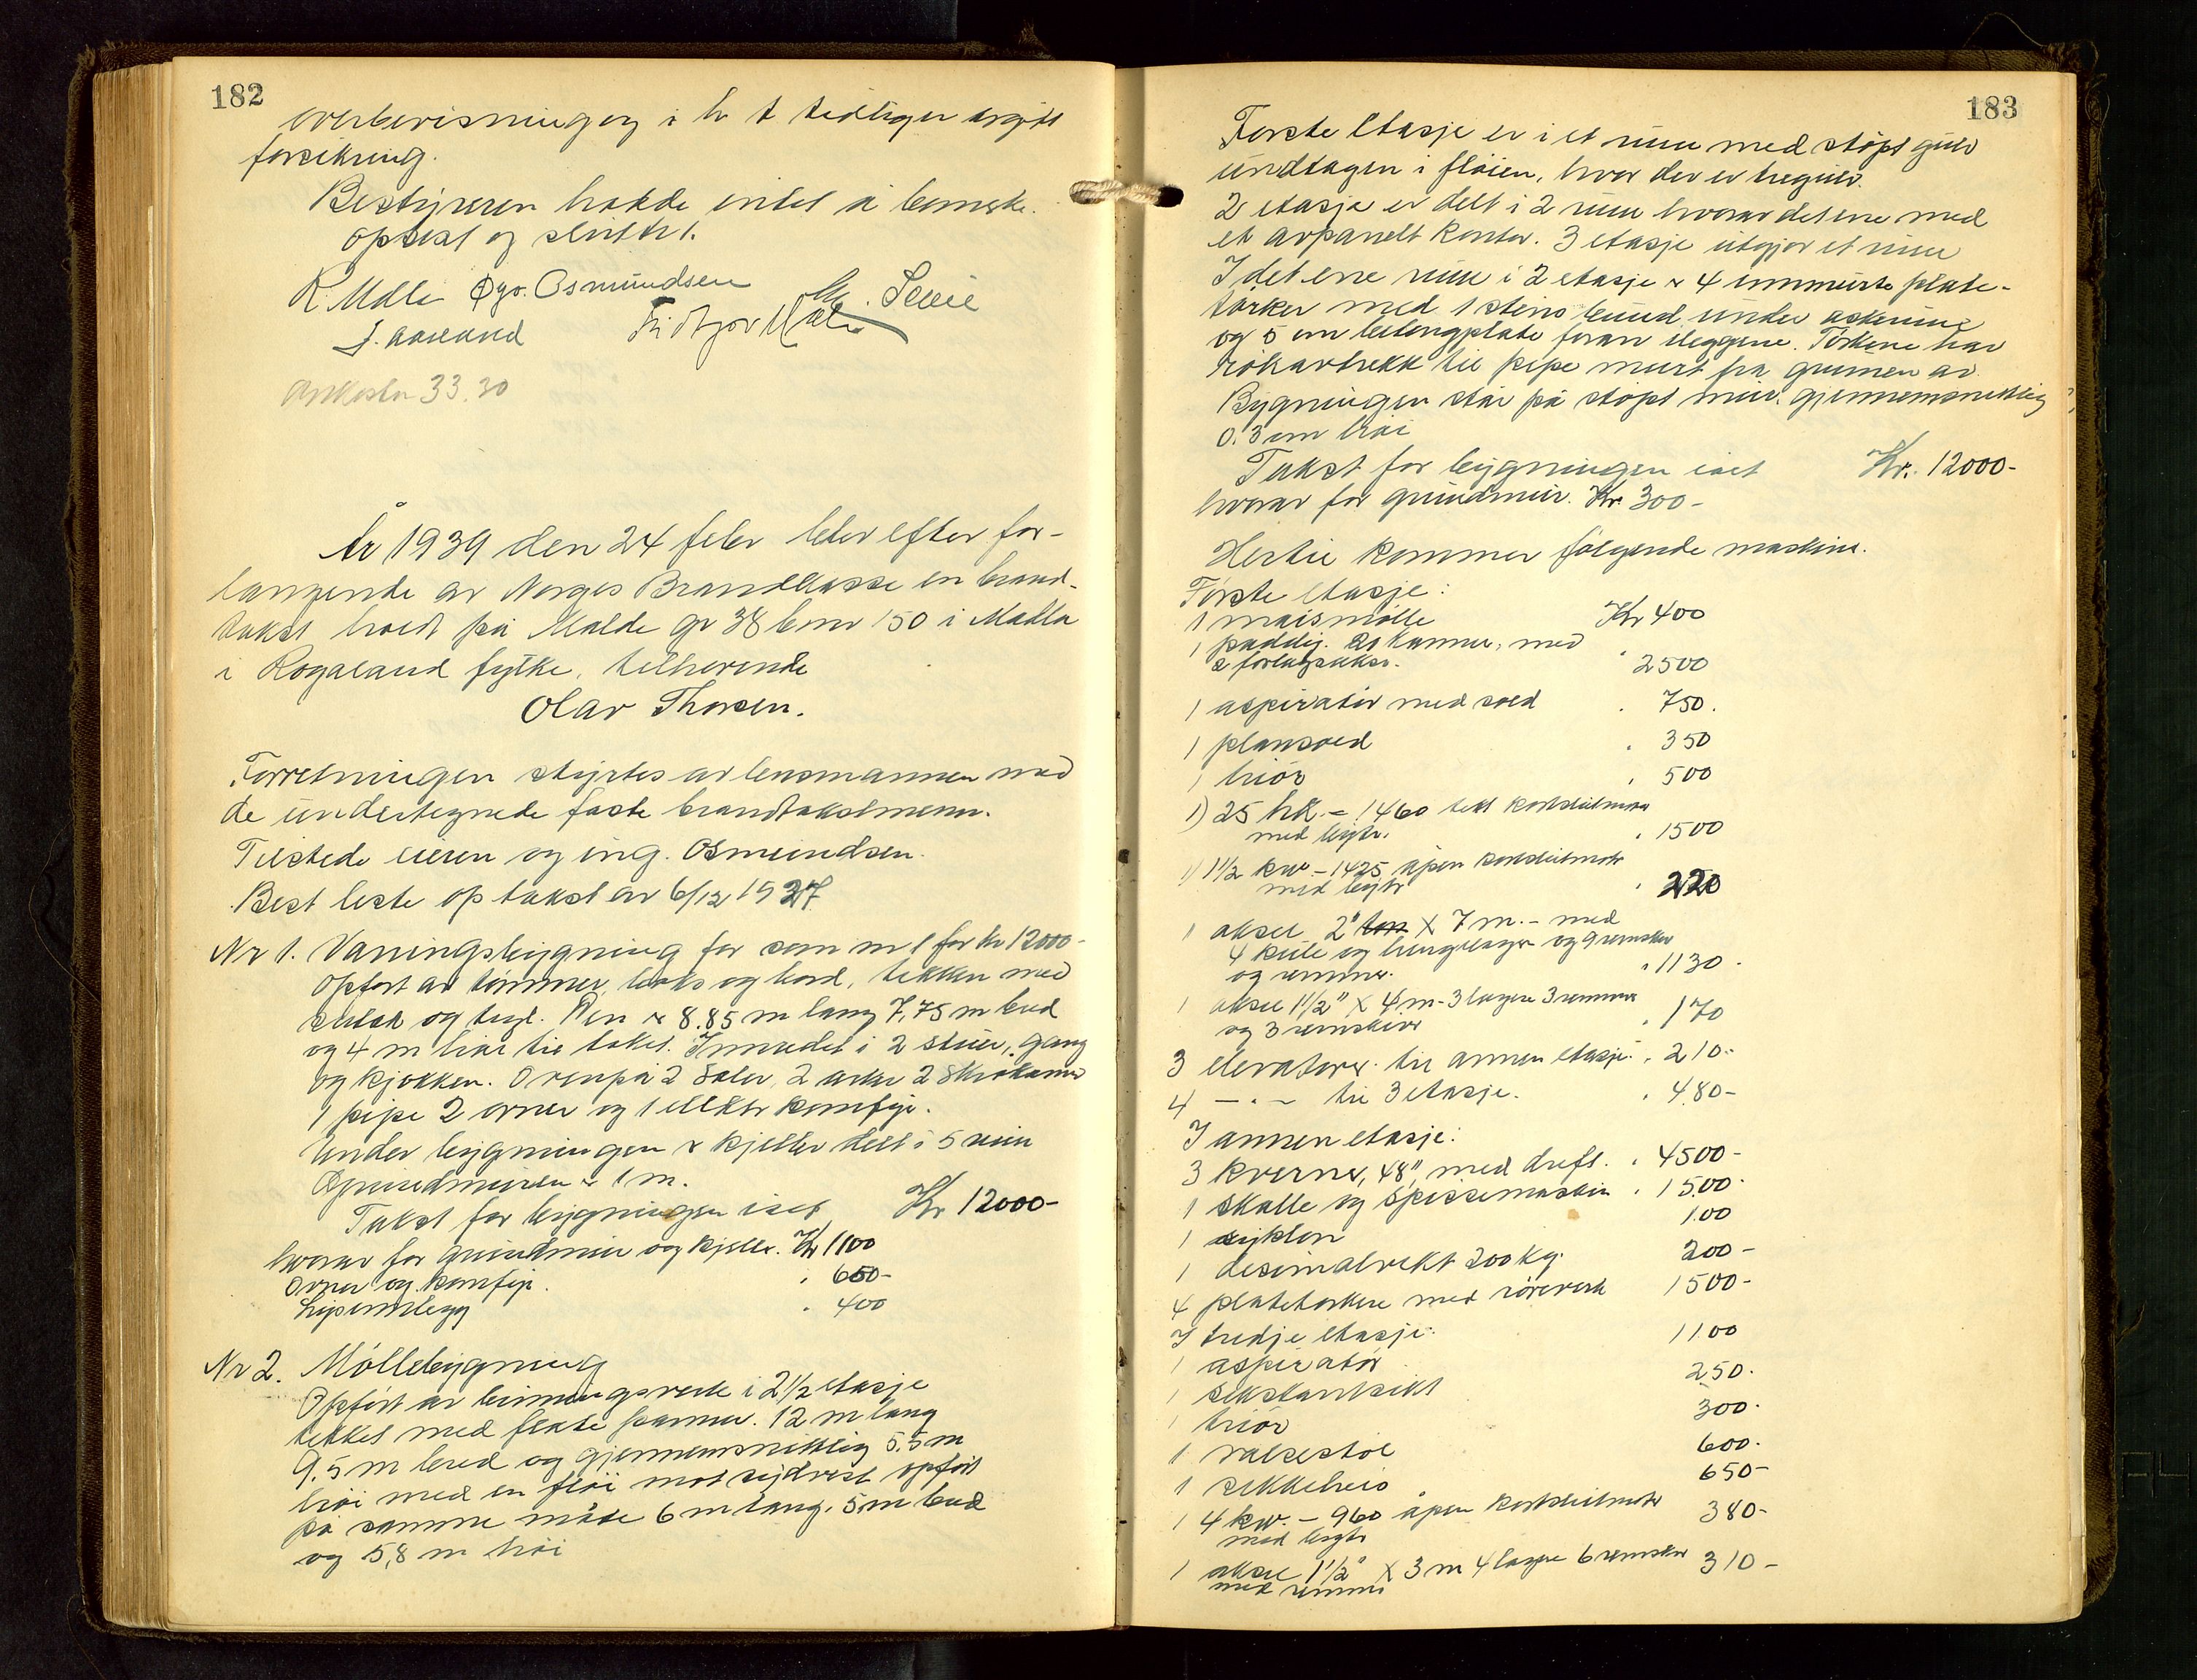 182
overbevisning og i h t tidligere avgitt
forsikring.
Bestyreren hadde intet å bemerke.
Oplest og sluttet.
R. Malde Øyv. Osmundsen M. Sevie
J. Aareland Fridtjov Malde
33.30
År 1939 den 24 febr blev efter for-
langende av Norges Brandkasse en brand-
takst holdt på Malde gr 38 bnr 150 i Madla
i Rogaland fylke, tilhørende
Olav Thorsen.
Forretningen styrtes av lensmannen med
de undertegnede faste brandtakstmenn.
Tilstede eieren og ing. Osmundsen.
Best leste op takst av 6/12 1937
Nr 1. Våningsbygning før som nr 1 for kr 12000-
Opført av tømmer, laks og bord, tekket med
sutak og tegl. Den er 8.85 m lang 7,75 m bred
og 4 m høi til taket. Innredet i 2 stuer, gang
og kjøkken. Ovenpå 2 saler, 2 arker 2 skråkamre
1 pipe 2 ovner og 1 elektr komfyr.
Under bygningen er kjeller delt i 5 rum
Grundmuren er 1 m.
Takst for bygningen iait Kr 12000-
hvorav for grundmur og kjeller. Kr 1100
Ovner og komfyr. " 600-
Lysinnlegg " 400
Nr 2. Møllebygning
Opført av bindingsverk i 2 1/2 etasje
tekket med flate panner. 12 m lang
9.5 m bred og gjennemsnittlig 5.5 m
høi med en fløi mot sydvest opført
på samme måte 6 m lang, 5 m bred
og 5,8 m høi
183
Første etasje er i et rum med støpt gulv
undtagen i fløien, hvor der er tregulv.
2 etasje er delt i 2 rum hvorav det ene med
et avpanelt kontor. 3 etasje utgjør et rum
I det ene rum i 2 etasje er 4 innmurte plate-
tørker med 1 steins bund under askerum
og 5 cm betongplate foran ileggene. Tørkene har
røkavtrekk til pipe murt fra grunnen av.
Bygningen står på støpt mur, gjennemsnittlig
0.3 cm høi
Takst for bygningen iait Kr. 12000-
hvorav for grundmur. Kr. 300-
Hertil kommer følgende maskiner.
Første etasje:
1 maismølle Kr 400
1 paddy. 21 kammer, med
2 forlagsakser. " 2500
1 aspiratør med sold " 750.
1 plansold " 350
1 triør " 500
1) 25 hk. - 1460 tett kortsluttmotor
med bryter. " 1500
1) 1 1/2 kw. - 1425 åpen kortsluttmotor
med bryter " 220
1 aksel 2" X 7 m. - med
4 kule og hengelager og 9 remskiver
og remmer. " 1130.
1 aksel 1 1/2" X 4 m - 3 lagere 3 remmer
og 3 remskiver " 170
3 elevatorer til annen etasje. " 210.-
4 - " - til 3 etasje. " 480-
I annen etasje:
3 kverner, 48", med drift. " 4500-
1 skalle og spissemaskin " 1500.
1 syklon 100
1 desimalvekt 200 kg. 200-
4 platetørkere med røreverk 1500-
I tredje etasje: 1100
1 aspiratør 250.
1 sekskantsikt 300.
1 triør 600.
1 valsestol 650-
1 sekkeheis
1 4 kw. - 960 åpen kortsluttmotor 380-
med bryter
1 aksel 1 1/2" X 3 m 4 lagere 6 remskiver 310-
med remmer